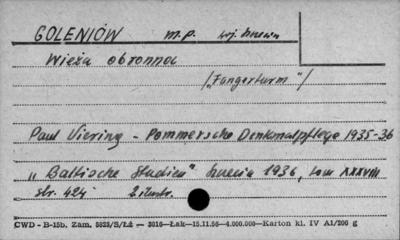 GOLENIÓW m.p. woj. Szczecin
Wieża obronna
/"Fangerturm"/
Paul Viering - Pommersche Denkmalpflege 1935-36
"Baltische Studien" Szczecin 1936, tom XXXVIII
str. 424 2 ilustr.
CWD - B-15b. Zam. 5825/S/Łż — 3016—Łak—15.11.56—4.000.000—Karton kl. IV A1/200 g